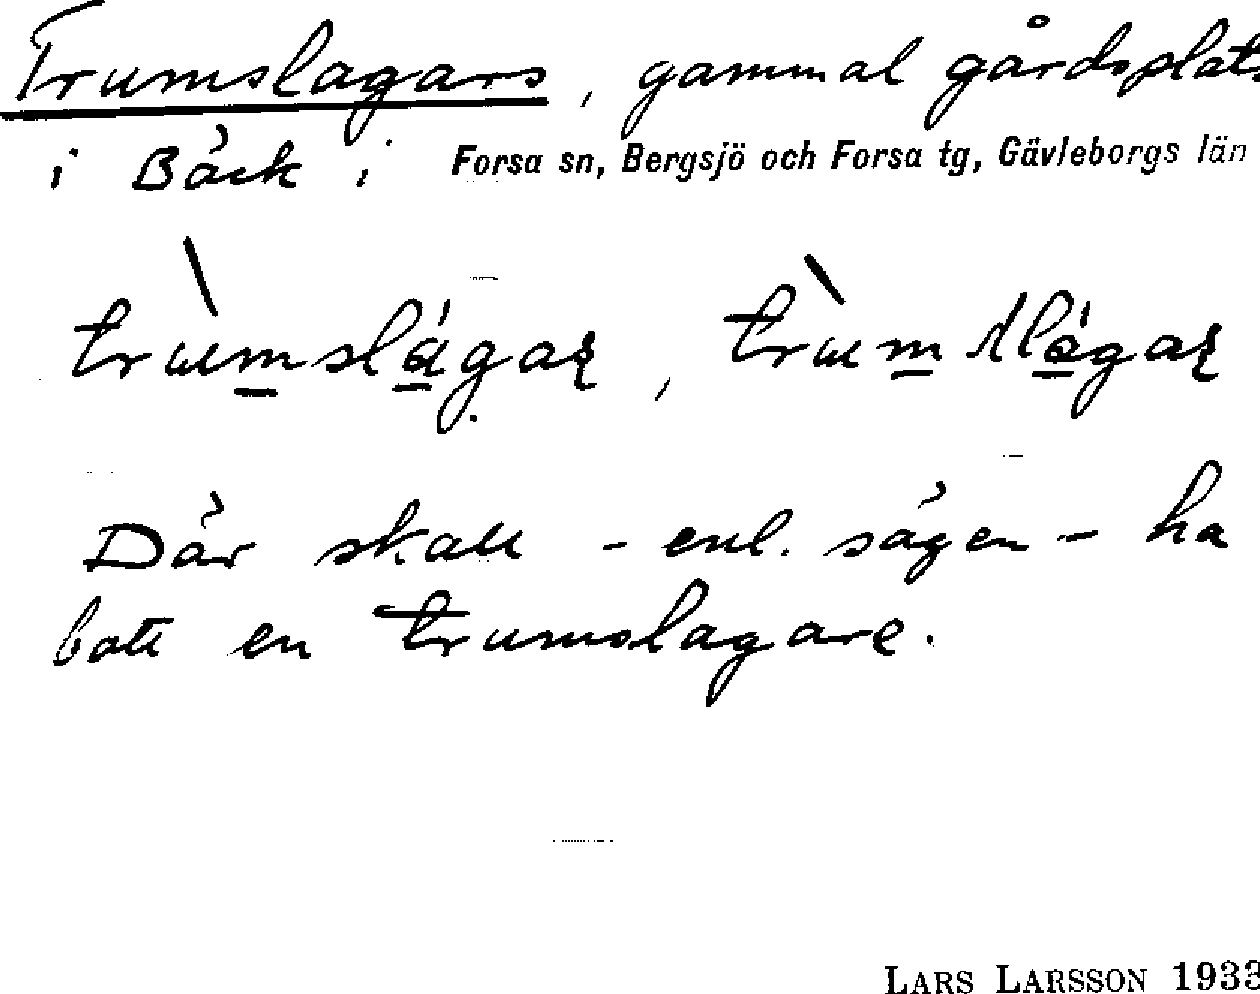 Trumslagars, gammal gårdsplats
i Bäck i Forsa sn, Bergsjö och Forsa tg, Gävleborgs län
Där skall - enl. sägen - ha
bott en trumslagare.
LARS LARSSON 1933